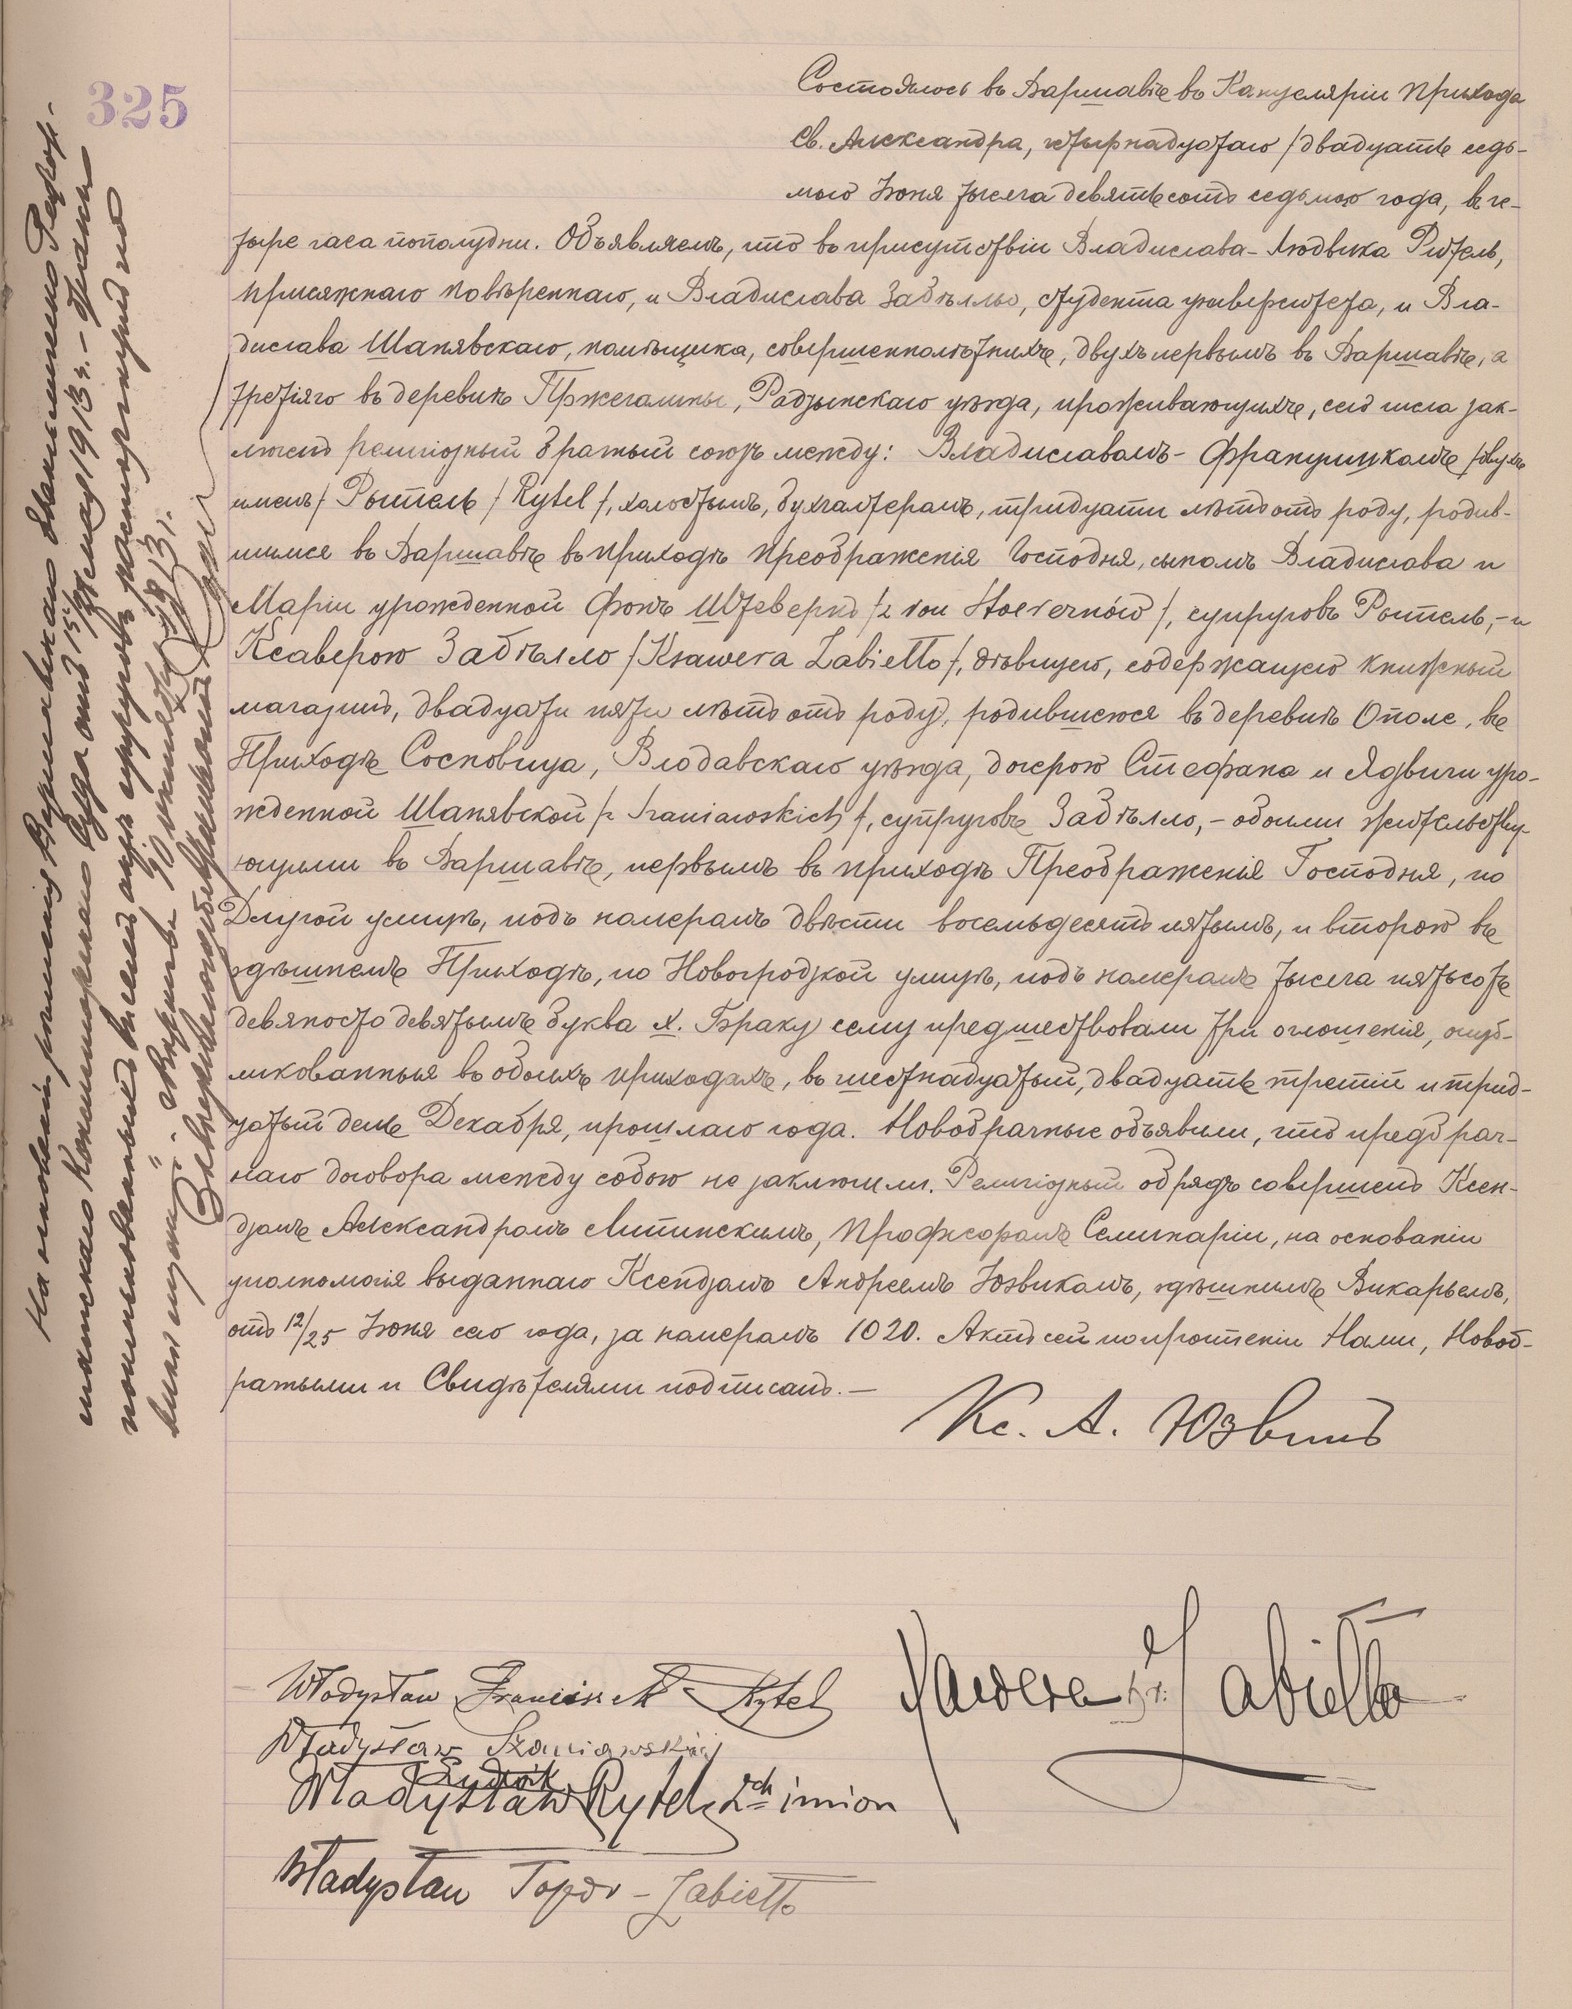 325
Состоялось въ Варшавѣ въ Канцеляріи Прихода
Св. Александра, четырнадцатаго /двадцать седь-
маго Іюня тысяча девятьсотъ седьмого года, въ че-
тыре часа пополудни. Объявляемъ, что въ присутствіи Владислава-Людвика Рытель,
присяжнаго повѣреннаго, и Владислава Забѣлльо, студента университета, и Вла-
дислава Шанявскаго, помѣщика, совершеннолѣтнихъ, двухъ первыхъ въ Варшавѣ, а
третіяго въ деревнѣ Пржегалины, Радзынскаго уѣзда, проживающихъ, сего числа зак-
люченъ религіозный брачный союзъ между: Владиславомъ-Францишкомъ /двухъ
именъ/ Рытель /Rytel/, холостымъ, бухгалтеромъ, тридцати лѣтъ отъ роду, родив-
шимся въ Варшавѣ въ приходѣ Преображенія Господня, сыномъ Владислава и
Маріи урожденной Фонъ Штевернъ /z von Stoevernów/, супруговъ Рытель,- и
Ксаверою Забѣлло /Ksawera Zabiełło/, дѣвицею, содержащею книжный
магазинъ, двадцати пяти лѣтъ отъ роду, родившеюся въ деревнѣ Ополе, въ
Приходѣ Сосновица, Влодавскаго уѣзда, дочерью Стефана и Ядвиги уро-
жденной Шанявской /z Szaniawskich/, супруговъ Забѣлло,- обоими жительству-
ющими въ Варшавѣ, первымъ въ приходѣ Преображенія Господня, по
Длугой улицѣ, подъ номеромъ двѣсти восемьдесятъ пятымъ, и второю въ
здѣшнемъ Приходѣ, по Новогродзкой улицѣ, подъ номеромъ тысяча пятьсотъ
девяносто девятымъ буква х. Браку сему предшествовали три оглошенія, опуб-
ликованныя въ обоихъ приходахъ, въ шестнадцатый, двадцать третій и трид-
цатый день Декабря, прошлаго года. Новобрачные объявили, что предбрач-
наго договора между собою не заключили. Религіозный обрядъ совершенъ Ксен-
дзомъ Александромъ Липинскимъ, Професоромъ Семинаріи, на основаніи
уполномочія выданнаго Ксендзомъ Андреемъ Юзвикомъ, здѣшнимъ Викарьемъ,
отъ 12/25 Іюня сего года, за номеромъ 1020. Актъ сей по прочтеніи Нами, Новоб-
рачными и Свидѣтелями подписанъ.-
Кс. А. Юзвикъ
Władysław Franciszek Rytel
Ksawera Zabiełło
Władysław Szaniawski
Ludwik
Władysław Rytel 2ch imion
Władysław Topór-Zabiełło